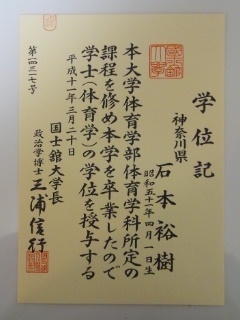 学位記
神奈川県
石本裕樹
昭和五十一年四月一日生
本大学体育学部体育学科所定の
課程を修め本学を卒業したので
学士(体育学)の学位を授与する
平成十一年三月二十日
国士舘大学長
政治学博士 三浦信行
第一四三一七号